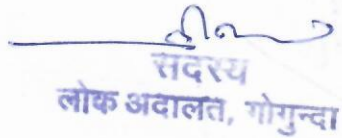 सदस्य
लोक अदालत, गोगुन्दा